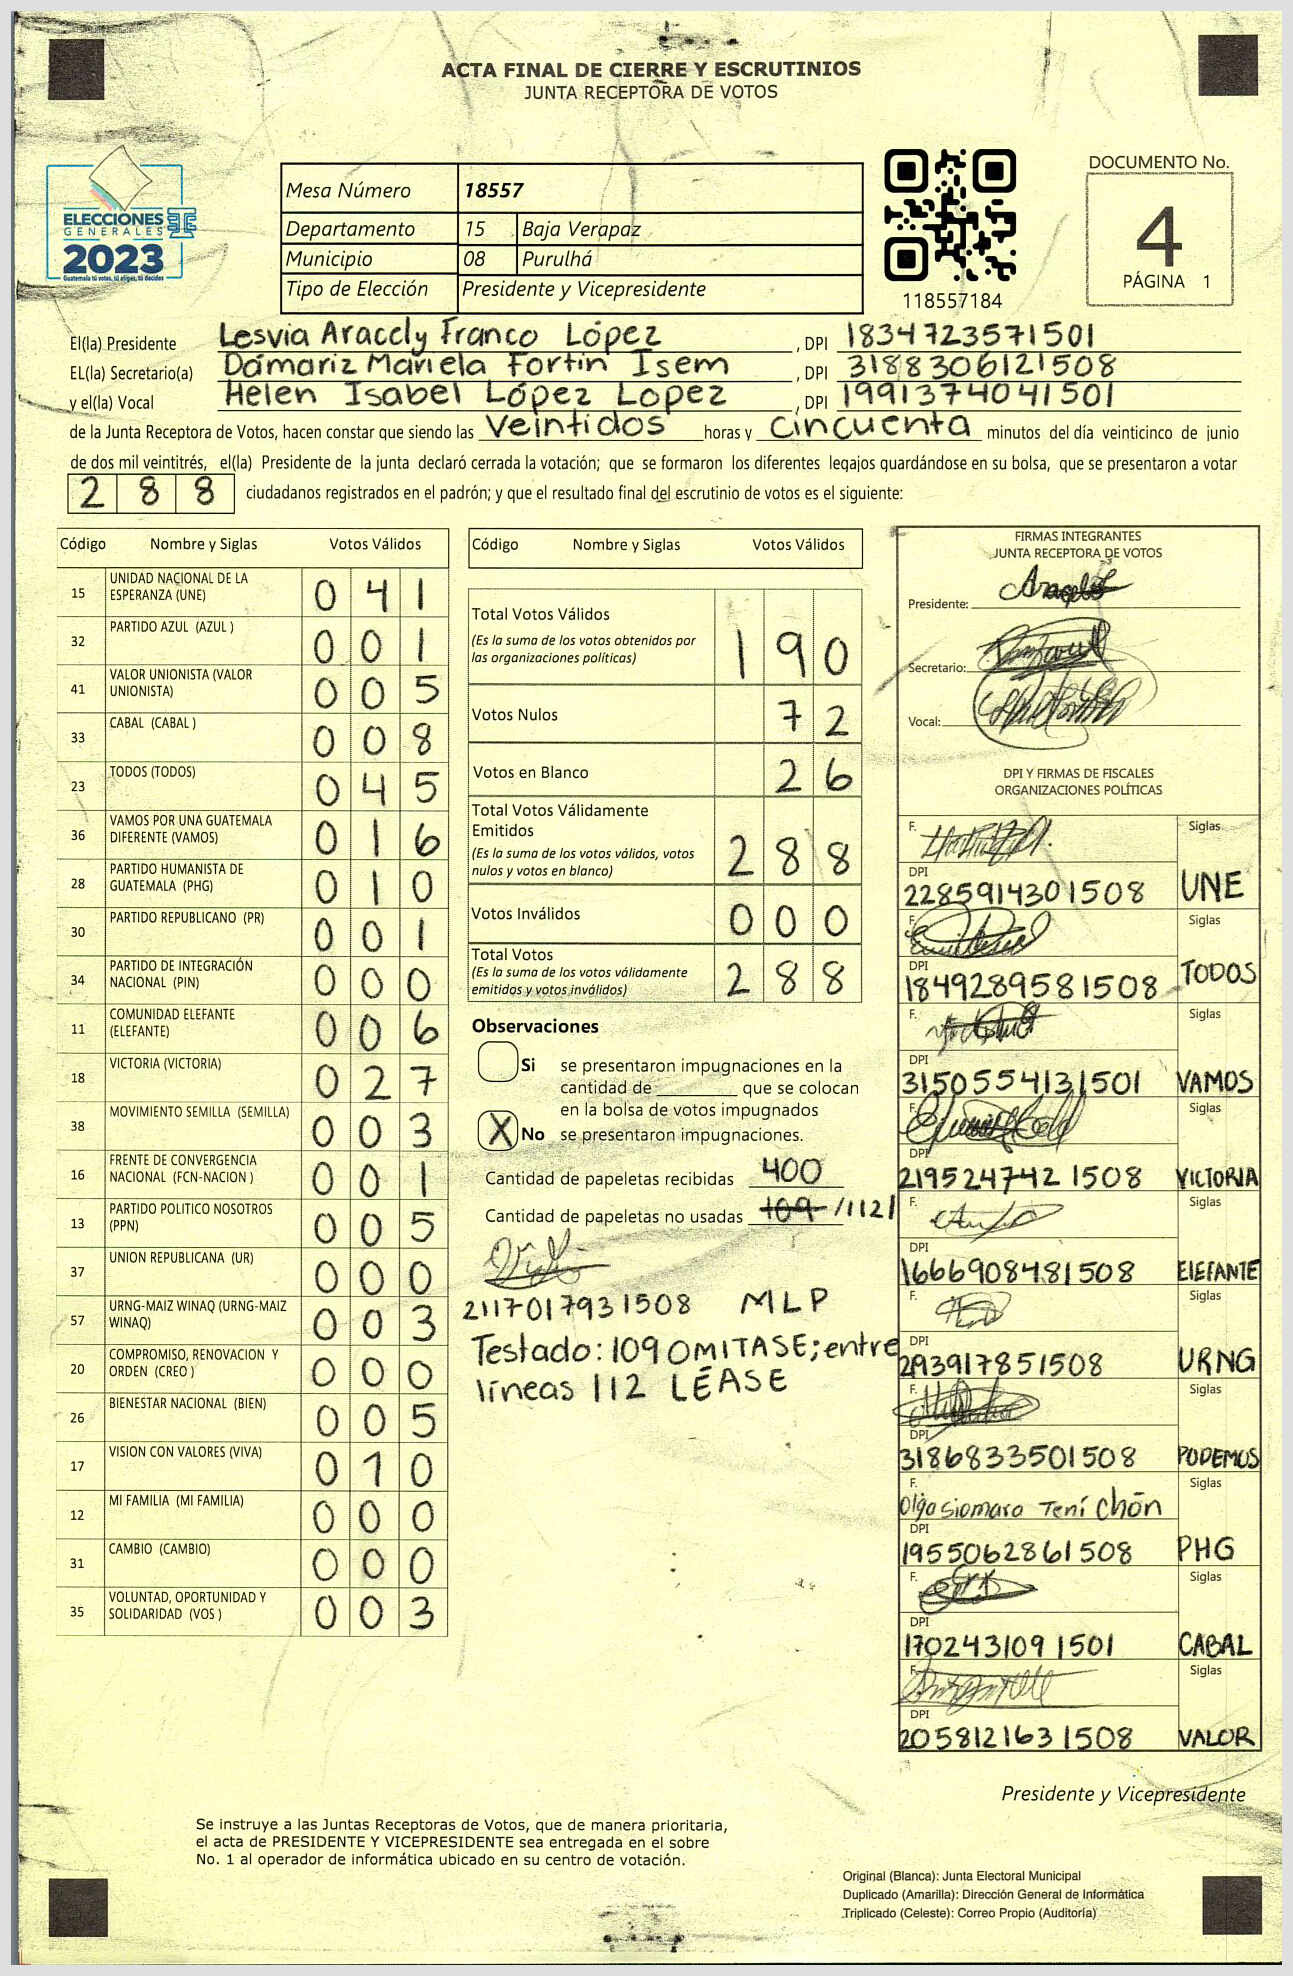 ACTA FINAL DE CIERRE Y ESCRUTINIOS
JUNTA RECEPTORA DE VOTOS
ELECCIONES
GENERALES
2023
Guatemala tú votas, tú eliges, tú decides
Mesa Número 18557
Departamento 15 Baja Verapaz
Municipio 08 Purulhá
Tipo de Elección Presidente y Vicepresidente
118557184
DOCUMENTO No.
4
PÁGINA 1
El(la) Presidente Lesvia Aracely Franco López , DPI 1834723571501
EL(la) Secretario(a) Dámariz Mariela Fortin Isem , DPI 3188306121508
y el(la) Vocal Helen Isabel López Lopez , DPI 1991374041501
de la Junta Receptora de Votos, hacen constar que siendo las Veintidos horas y Cincuenta minutos del día veinticinco de junio
de dos mil veintitrés, el(la) Presidente de la junta declaró cerrada la votación; que se formaron los diferentes legajos guardándose en su bolsa, que se presentaron a votar
288 ciudadanos registrados en el padrón; y que el resultado final del escrutinio de votos es el siguiente:
Código Nombre y Siglas Votos Válidos
15 UNIDAD NACIONAL DE LA ESPERANZA (UNE) 041
32 PARTIDO AZUL (AZUL ) 001
41 VALOR UNIONISTA (VALOR UNIONISTA) 005
33 CABAL (CABAL ) 008
23 TODOS (TODOS) 045
36 VAMOS POR UNA GUATEMALA DIFERENTE (VAMOS) 016
28 PARTIDO HUMANISTA DE GUATEMALA (PHG) 010
30 PARTIDO REPUBLICANO (PR) 001
34 PARTIDO DE INTEGRACIÓN NACIONAL (PIN) 000
11 COMUNIDAD ELEFANTE (ELEFANTE) 006
18 VICTORIA (VICTORIA) 027
38 MOVIMIENTO SEMILLA (SEMILLA) 003
16 FRENTE DE CONVERGENCIA NACIONAL (FCN-NACION ) 001
13 PARTIDO POLITICO NOSOTROS (PPN) 005
37 UNION REPUBLICANA (UR) 000
57 URNG-MAIZ WINAQ (URNG-MAIZ WINAQ) 003
20 COMPROMISO, RENOVACION Y ORDEN (CREO ) 000
26 BIENESTAR NACIONAL (BIEN) 005
17 VISION CON VALORES (VIVA) 010
12 MI FAMILIA (MI FAMILIA) 000
31 CAMBIO (CAMBIO) 000
35 VOLUNTAD, OPORTUNIDAD Y SOLIDARIDAD (VOS ) 003
Código Nombre y Siglas Votos Válidos
Total Votos Válidos 190
(Es la suma de los votos obtenidos por
las organizaciones políticas)
Votos Nulos 72
Votos en Blanco 26
Total Votos Válidamente
Emitidos 288
(Es la suma de los votos válidos, votos
nulos y votos en blanco)
Votos Inválidos 000
Total Votos 288
(Es la suma de los votos válidamente
emitidos y votos inválidos)
Observaciones
Si se presentaron impugnaciones en la
cantidad de ________ que se colocan
en la bolsa de votos impugnados
X No se presentaron impugnaciones.
Cantidad de papeletas recibidas 400
Cantidad de papeletas no usadas 109 /112/
2117017931508 MLP
Testado: 109 OMITASE; entre
líneas 112 LÉASE
FIRMAS INTEGRANTES
JUNTA RECEPTORA DE VOTOS
Presidente:
Secretario:
Vocal:
DPI Y FIRMAS DE FISCALES
ORGANIZACIONES POLÍTICAS
F. Siglas
DPI
2285914301508 UNE
F. Siglas
DPI
1849289581508 TODOS
F. Siglas
DPI
3150554131501 VAMOS
F. Siglas
DPI
219524742 1508 VICTORIA
F. Siglas
DPI
1666908481508 ElEFANTE
F. Siglas
DPI
URNG
F. Siglas
DPI
3186833501508 PODEMOS
F. Olga Siomara Tení Chón Siglas
DPI
1955062861508 PHG
F. Siglas
DPI
170243109 1501 CABAL
F. Siglas
DPI
2058121631508 VALOR
Presidente y Vicepresidente
Se instruye a las Juntas Receptoras de Votos, que de manera prioritaria,
el acta de PRESIDENTE Y VICEPRESIDENTE sea entregada en el sobre
No. 1 al operador de informática ubicado en su centro de votación.
Original (Blanca): Junta Electoral Municipal
Duplicado (Amarilla): Dirección General de Informática
Triplicado (Celeste): Correo Propio (Auditoría)